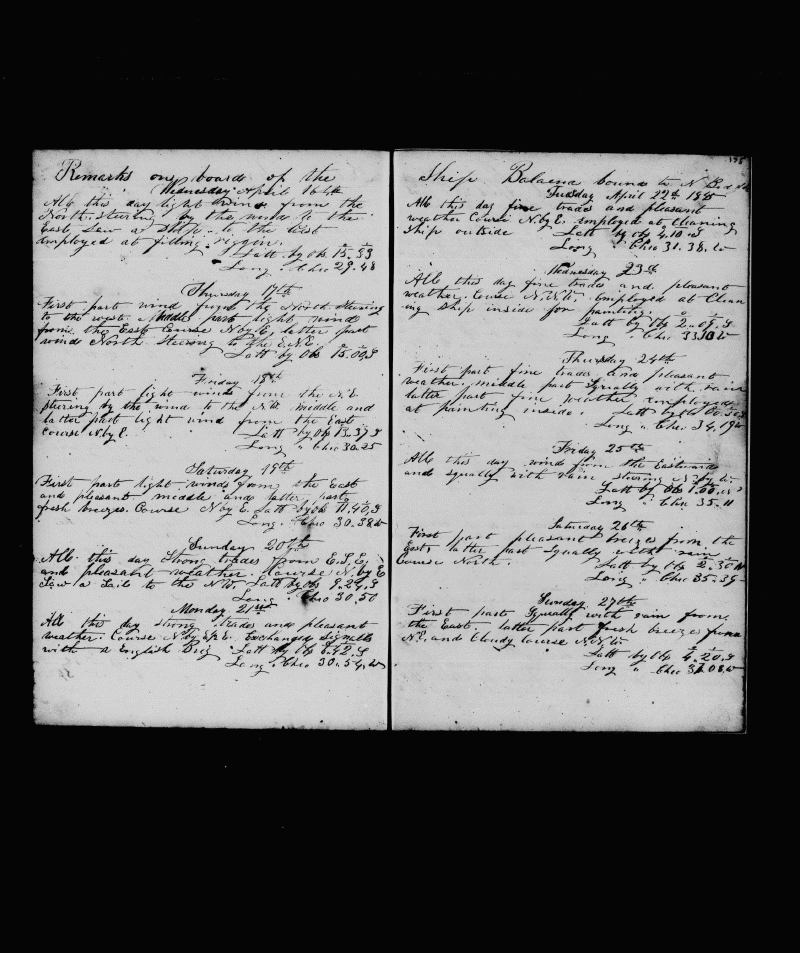 Remarks on board of the
Wednesday April 16th
All this day light winds from the
North. steering by the wind to the
East. Saw a Ship to the West
employed at fitting riggin.
Latt by obs 15.53
Long " Chro 29.48
Thursday 17th
First part wind from the North steering
to the west. Middle part light wind
from the East Course N by E, latter part
winds North Steering to the E.N.E.
Latt by Obs 15.00 S
Friday 18th
First part light winds from the N.E.
stering by the wind to the NW. middle and
latter part light wind from the East
Course N. by E. Latt by obs 13.37 S
Long " Chro 30.25
Saturday 19th
First part light winds from the East
and pleasant middle and latter part
fresh breezes. Course N by E. Latt by obs 11.40 S
Long. " Chro 30.38 W
Sunday 20th
All this day Strong trades from E.S.E.
and pleasant weather. Course N. by E
Saw a Sail to the N.W. Latt by obs 9.24 S
Long " Chro 30.50
Monday 21st
All this day strong trades and pleasant
weather. Course N by E. Exchanged signells
with a English Brig Latt by obs 6.42 S
Long " Chro 30.54 W
138
Ship Balaena bound to N Bedford
Tuesday April 22th 1845
All this day fine trades and pleasant
weather Course N. by E. employed at Cleaning
Ship outside Latt by obs 4.10 S
Long " Chro 31.38. W
Wednesday 23th
All this day fine trades and pleasant
weather. Course N.N.W. Employed at Clean
ing Ship inside for painting.
Latt by Obs 2.09. S
Long " Chro 33.10 W
Thursday 24th
First part fine trades and pleasant
weather, middle part Squally with rain
latter part fine weather employed
at painting inside. Latt by Obs
Long " Chro 34.19 W
Friday 25th
All this day winds from the Eastward
and squally with rain steering N by W.
Latt by Obs
Long " Chro 35.11
Saturday 26th
First part pleasant breezes from the
East, latter part squally with rain
Course North. Latt by Obs 2.30 N
Long " Chro 35.39
Sunday 27th
First part Squally with rain from
the East. latter part fresh breezes from
N.E. and Cloudy Course N.N.W.
Latt by Obs 4.20.
Long " Chro